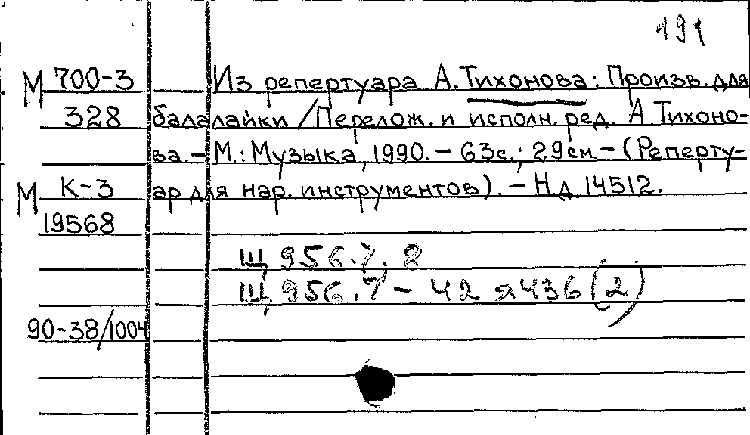 191
М 700-3 Из репертуара А. Тихонова: Произв. для
328 балалайки / Перелож. и исполн. ред. А Тихоно-
ва. – М.: Музыка, 1990. – 63с.; 29см – (Реперту-
М К-3 ар для нар. инструментов). – Н д 14512.
19568
Щ 956.7, 8
Щ 956.7 – 42 я436 (2)
90-38/1004